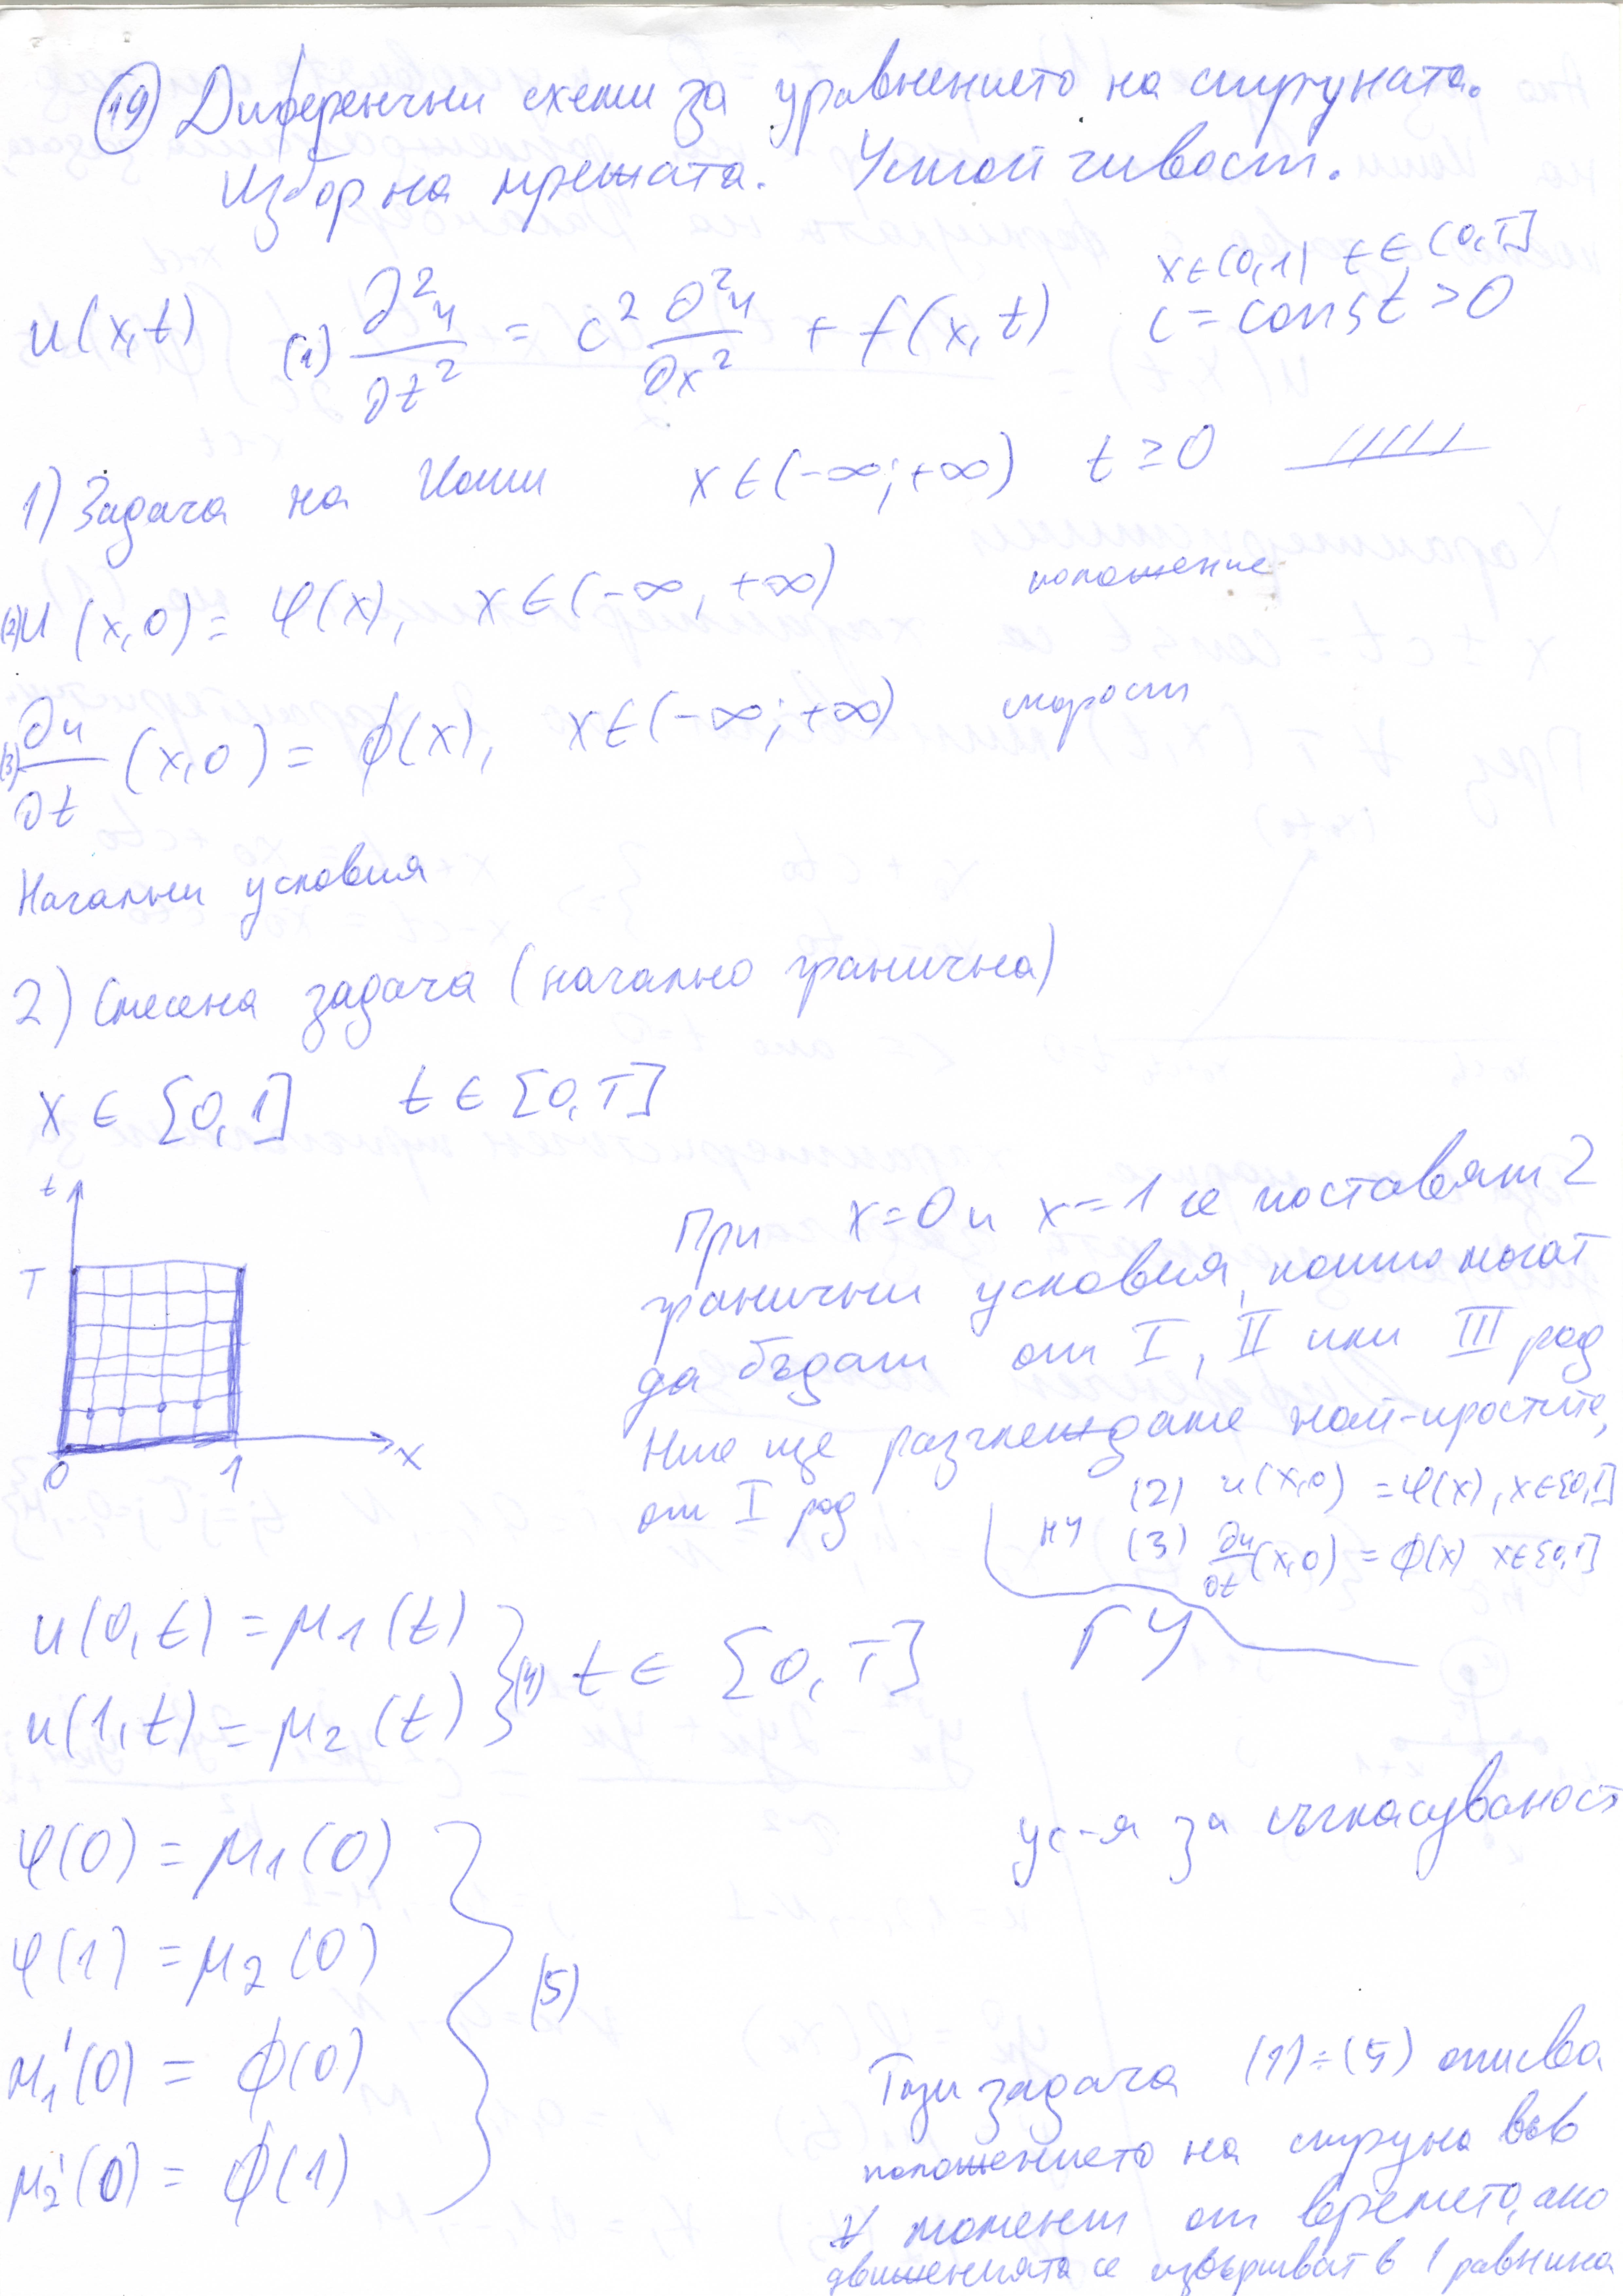 (19) Диференчни схеми за уравнението на струната.
Избор на мрежата. Устойчивост.
x∈(0,1) t∈(0,T]
u(x,t) (1) ∂²u/∂t² = c² ∂²u/∂x² + f(x,t) c = const > 0
1) Задача на Коши x∈(-∞;+∞) t ≥ 0
(2) u(x,0) = φ(x), x∈(-∞,+∞) положение
(3) ∂u/∂t (x,0) = ϕ(x), x∈(-∞;+∞) скорост
Начални условия
2) Смесена задача (начално гранична)
x ∈ [0,1] t ∈ [0,T]
t
T
0 1 x
При x=0 и x=1 се поставят 2
гранични условия, които могат
да бъдат от I, II или III род
Ние ще разглеждаме най-простите,
от I род
НУ (2) u(x,0) = φ(x), x∈[0,1]
(3) ∂u/∂t (x,0) = ϕ(x) x∈[0,1]
ГУ
u(0,t) = μ₁(t)
u(1,t) = μ₂(t) } (4) t ∈ [0,T]
ус-я за съгласуваност
φ(0) = μ₁(0)
φ(1) = μ₂(0)
μ₁'(0) = ϕ(0)
μ₂'(0) = ϕ(1)
} (5)
Тази задача (1)÷(5) описва
положението на струна във
∀ момент от времето, ако
движенията се извършват в 1 равнина